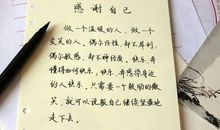 感谢自己
做一个温暖的人，做一个
爱笑的人，偶尔任性，却不犀利，
偶尔敏感，却不神经质，快乐，并
懂得如何快乐，快乐，并感染身边
的人快乐，只需要一个鼓励的微
笑，就可以说服自己继续坚强地
走下去。